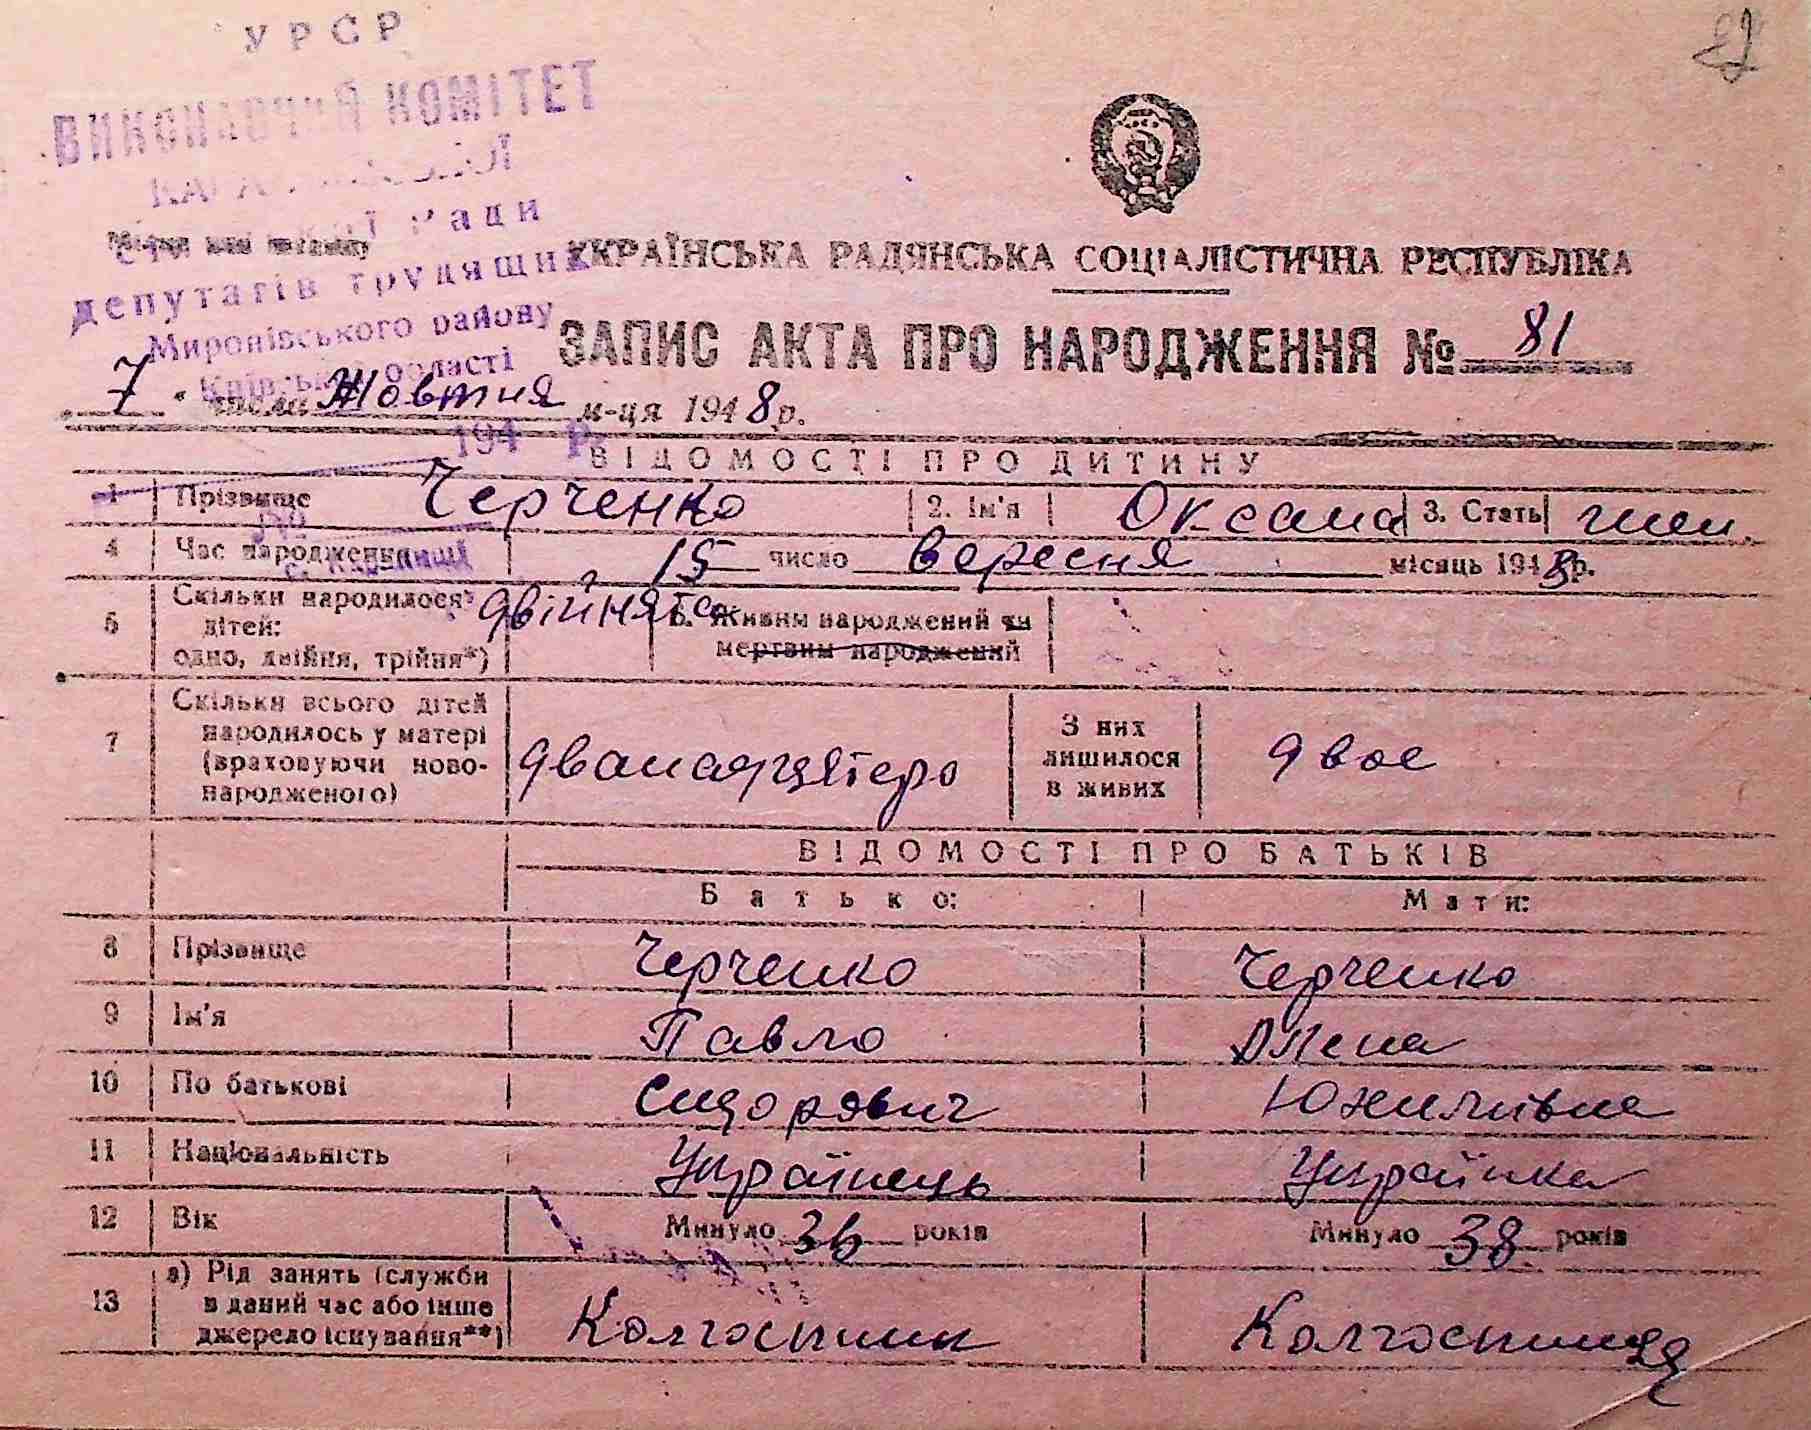 УРСР
ВИКОНАВЧИЙ КОМІТЕТ
Ради
депутатів трудящих
Миронівського району
Київської області
194 р.
УКРАЇНСЬКА РАДЯНСЬКА СОЦІАЛІСТИЧНА РЕСПУБЛІКА
ЗАПИС АКТА ПРО НАРОДЖЕННЯ № 81
7 числа Жовтня м-ця 1948 р.
ВІДОМОСТІ ПРО ДИТИНУ
1 Прізвище Черченко 2. Ім'я Оксана 3. Стать жен.
4 Час народження 15 число вересня місяць 1948 р.
5 Скільки народилося дітей: одно, двійня, трійня*) двійнята 6. Живим народжений чи мертвим народжений
7 Скільки всього дітей народилось у матері (враховуючи новонародженого) дванадцятеро З них лишилося в живих двоє
ВІДОМОСТІ ПРО БАТЬКІВ
Батько: Мати:
8 Прізвище Черченко Черченко
9 Ім'я Павло Олена
10 По батькові Сидорявич Юхимівна
11 Національність Українець Українка
12 Вік Минуло 36 років Минуло 38 років
13 а) Рід занять (служби в даний час або інше джерело існування**) Колгоспник Колгоспниця